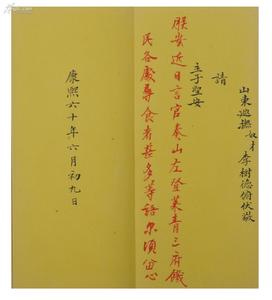 山東巡撫奴才李樹德俯伏跪
請
主子聖安
朕安近日言官奏山左登萊青三府饑
民各處尋食者甚多等語尔須留心
康熙六十年六月初九日